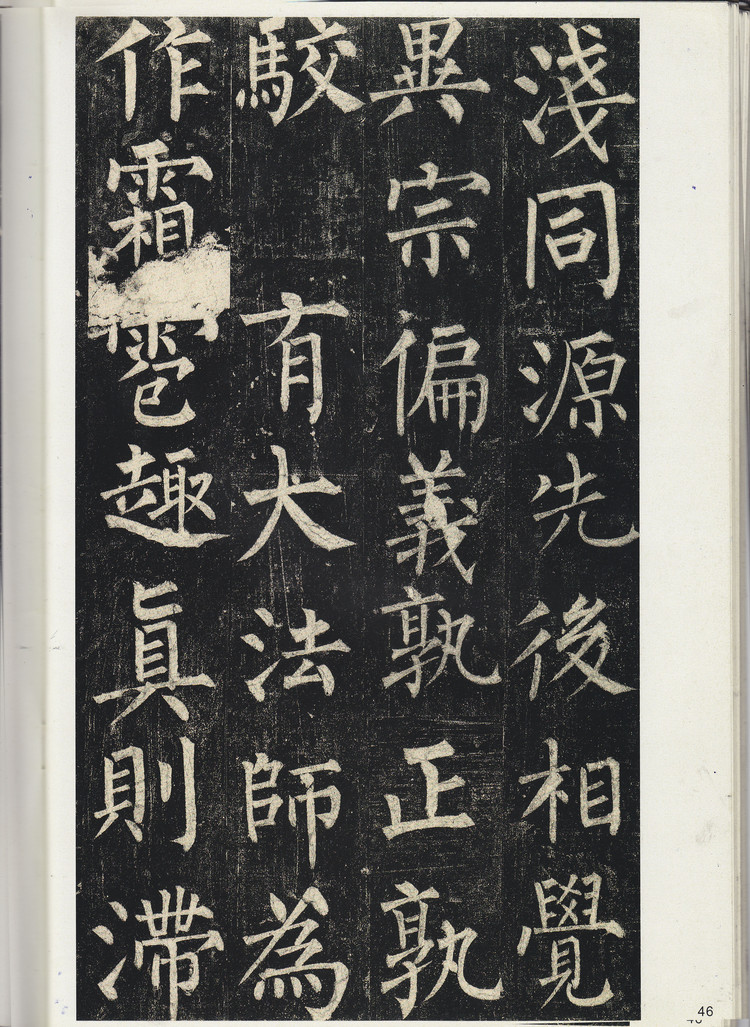 淺同源先後相覺
異宗偏義孰正孰
駮　有大法師為
作霜雹趣眞則滯
46